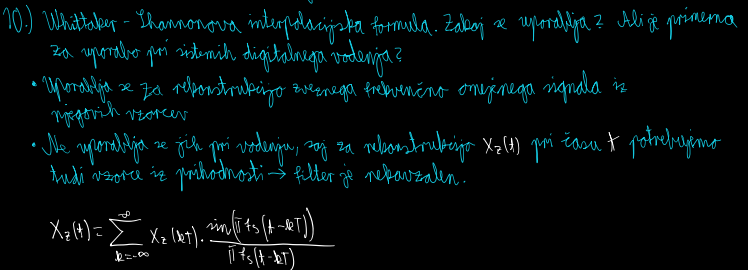 10.) Whittaker - Shannonova interpolacijska formula. Zakaj se uporablja? Ali je primerna
za uporabo pri sistemih digitalnega vodenja?
• Uporablja se za rekonstrukcijo zveznega frekvenčno omejenega signala iz
njegovih vzorcev
• Ne uporablja se jih pri vodenju, saj za rekonstrukcijo x_z(t) pri času t potrebujemo
tudi vzorce iz prihodnosti → filter je nekavzalen.
x_z(t) = ∑_{k=-∞}^{∞} x_z(kT) · sin(πf_s(t-kT)) / πf_s(t-kT)